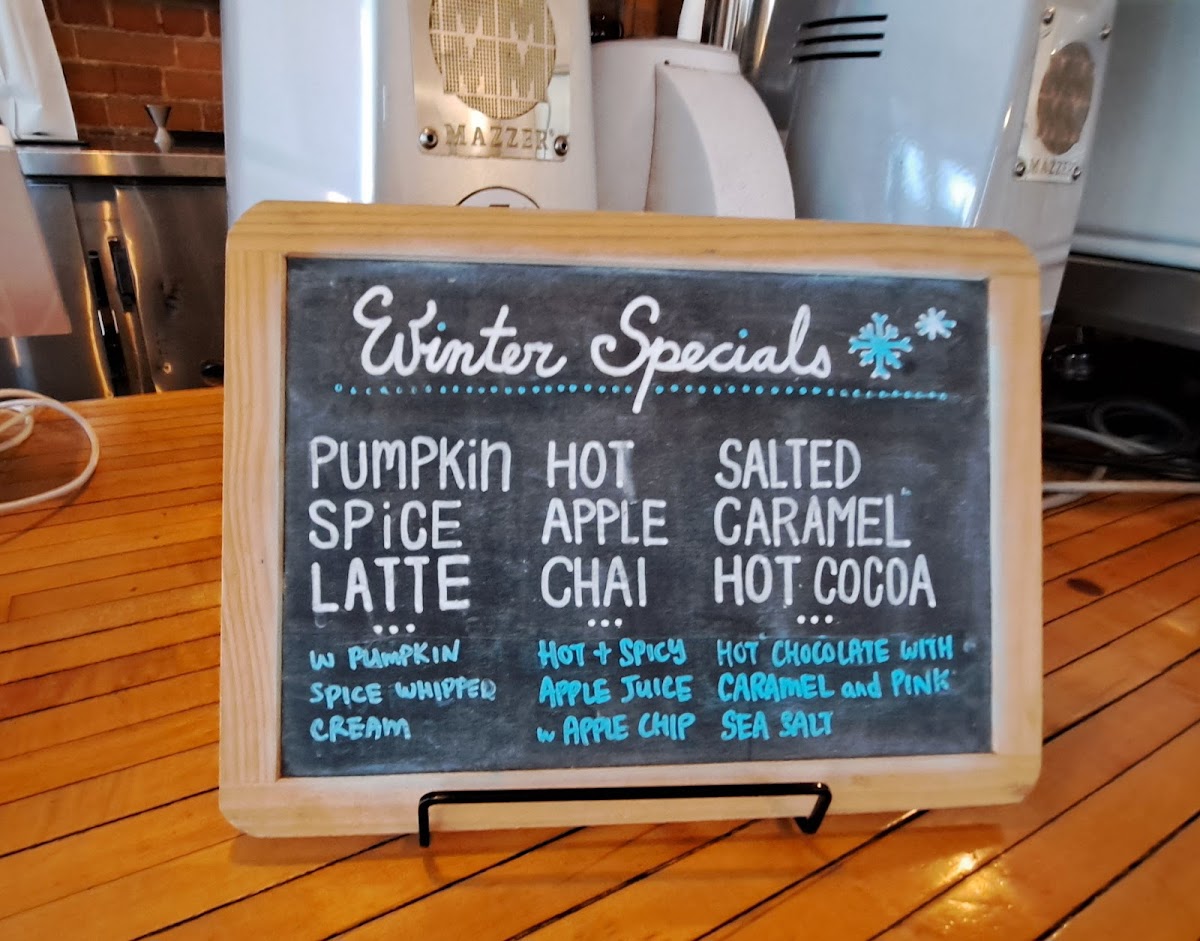 MAZZER
MAZZER
Winter Specials
PUMPKin
SPiCE
LATTE
...
w PUMPKIN
SPICE WHIPPED
CREAM
HOT
APPLE
CHAI
...
HOT + SPICY
APPLE JUICE
w APPLE CHIP
SALTED
CARAMEL
HOT COCOA
...
HOT CHOCOLATE WITH
CARAMEL and PINK
SEA SALT